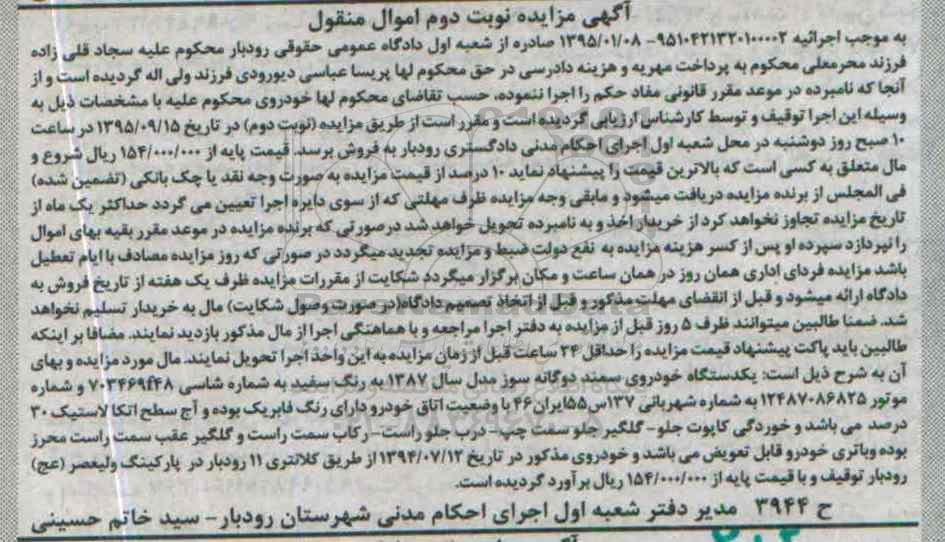 آگهی مزایده نوبت دوم اموال منقول
به موجب اجرائیه ۹۵۱۰۴۲۱۳۲۰۱۰۰۰۰۲- ۱۳۹۵/۰۱/۰۸ صادره از شعبه اول دادگاه عمومی حقوقی رودبار محکوم علیه سجاد قلی زاده
فرزند محرمعلی محکوم به پرداخت مهریه و هزینه دادرسی در حق محکوم لها پریسا عباسی دیورودی فرزند ولی اله گردیده است و از
آنجا که نامبرده در موعد مقرر قانونی مفاد حکم را اجرا ننموده، حسب تقاضای محکوم لها خودروی محکوم علیه با مشخصات ذیل به
وسیله این اجرا توقیف و توسط کارشناس ارزیابی گردیده است و مقرر است از طریق مزایده (نوبت دوم) در تاریخ ۱۳۹۵/۰۹/۱۵ در ساعت
۱۰ صبح روز دوشنبه در محل شعبه اول اجرای احکام مدنی دادگستری رودبار به فروش برسد. قیمت پایه از ۱۵۴/۰۰۰/۰۰۰ ریال شروع و
مال متعلق به کسی است که بالاترین قیمت را پیشنهاد نماید ۱۰ درصد از قیمت مزایده به صورت وجه نقد یا چک بانکی (تضمین شده)
فی المجلس از برنده مزایده دریافت میشود و مابقی وجه مزایده ظرف مهلتی که از سوی دایره اجرا تعیین می گردد حداکثر یک ماه از
تاریخ مزایده تجاوز نخواهد کرد از خریدار اخذ و به نامبرده تحویل خواهد شد درصورتی که برنده مزایده در موعد مقرر بقیه بهای اموال
را نپردازد سپرده او پس از کسر هزینه مزایده به نفع دولت ضبط و مزایده تجدید میگردد در صورتی که روز مزایده مصادف با ایام تعطیل
باشد مزایده فردای اداری همان روز در همان ساعت و مکان برگزار میگردد شکایت از مقررات مزایده ظرف یک هفته از تاریخ فروش به
دادگاه ارائه میشود و قبل از انقضای مهلت مذکور و قبل از اتخاذ تصمیم دادگاه(در صورت وصول شکایت) مال به خریدار تسلیم نخواهد
شد. ضمنا طالبین میتوانند ظرف ۵ روز قبل از مزایده به دفتر اجرا مراجعه و با هماهنگی اجرا از مال مذکور بازدید نمایند. مضافا بر اینکه
طالبین باید پاکت پیشنهاد قیمت مزایده را حداقل ۲۴ ساعت قبل از زمان مزایده به این واحد اجرا تحویل نمایند. مال مورد مزایده و بهای
آن به شرح ذیل است: یکدستگاه خودروی سمند دوگانه سوز مدل سال ۱۳۸۷ به رنگ سفید به شماره شاسی ۷۰۳۴۶۹۴۴۸ و شماره
موتور ۱۲۴۸۷۰۸۶۸۲۵ به شماره شهربانی ۱۳۷س۵۵ایران۴۶ با وضعیت اتاق خودرو دارای رنگ فابریک بوده و آج سطح اتکا لاستیک ۳۰
درصد می باشد و خوردگی کاپوت جلو- گلگیر جلو سمت چپ- درب جلو راست- رکاب سمت راست و گلگیر عقب سمت راست محرز
بوده وباتری خودرو قابل تعویض می باشد و خودروی مذکور در تاریخ ۱۳۹۴/۰۷/۱۲ از طریق کلانتری ۱۱ رودبار در پارکینگ ولیعصر (عج)
رودبار توقیف و با قیمت پایه از ۱۵۴/۰۰۰/۰۰۰ ریال برآورد گردیده است.
ح ۳۹۴۴ مدیر دفتر شعبه اول اجرای احکام مدنی شهرستان رودبار- سید خاتم حسینی